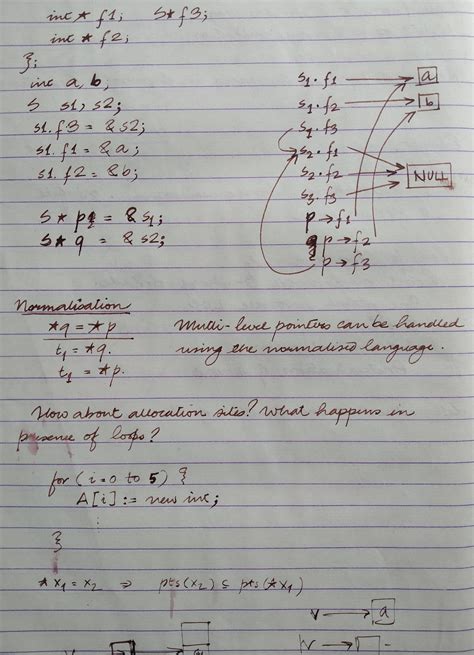 int * f1;   S* f3;
int * f2;
};
int a, b;
S s1, s2;
s1.f3 = & s2;
s1.f1 = & a;
s1.f2 = & b;
S* p = & s1;
S* q = & s2;
s1.f1
a
s1.f2
b
s1.f3
s2.f1
s2.f2
NULL
s3.f3
p → f1
p → f2
p → f3
Normalisation
*q = *p
t1 = *q.
t1 = *p.
Multi-level pointers can be handled
using the normalised language.
How about allocation sites? What happens in
presence of loops?
for ( i=0 to 5) {
A[i] := new int;
⋮
}
*x1 = x2 ⇒ pts(x2) ⊆ pts(*x1)
v → a
v →